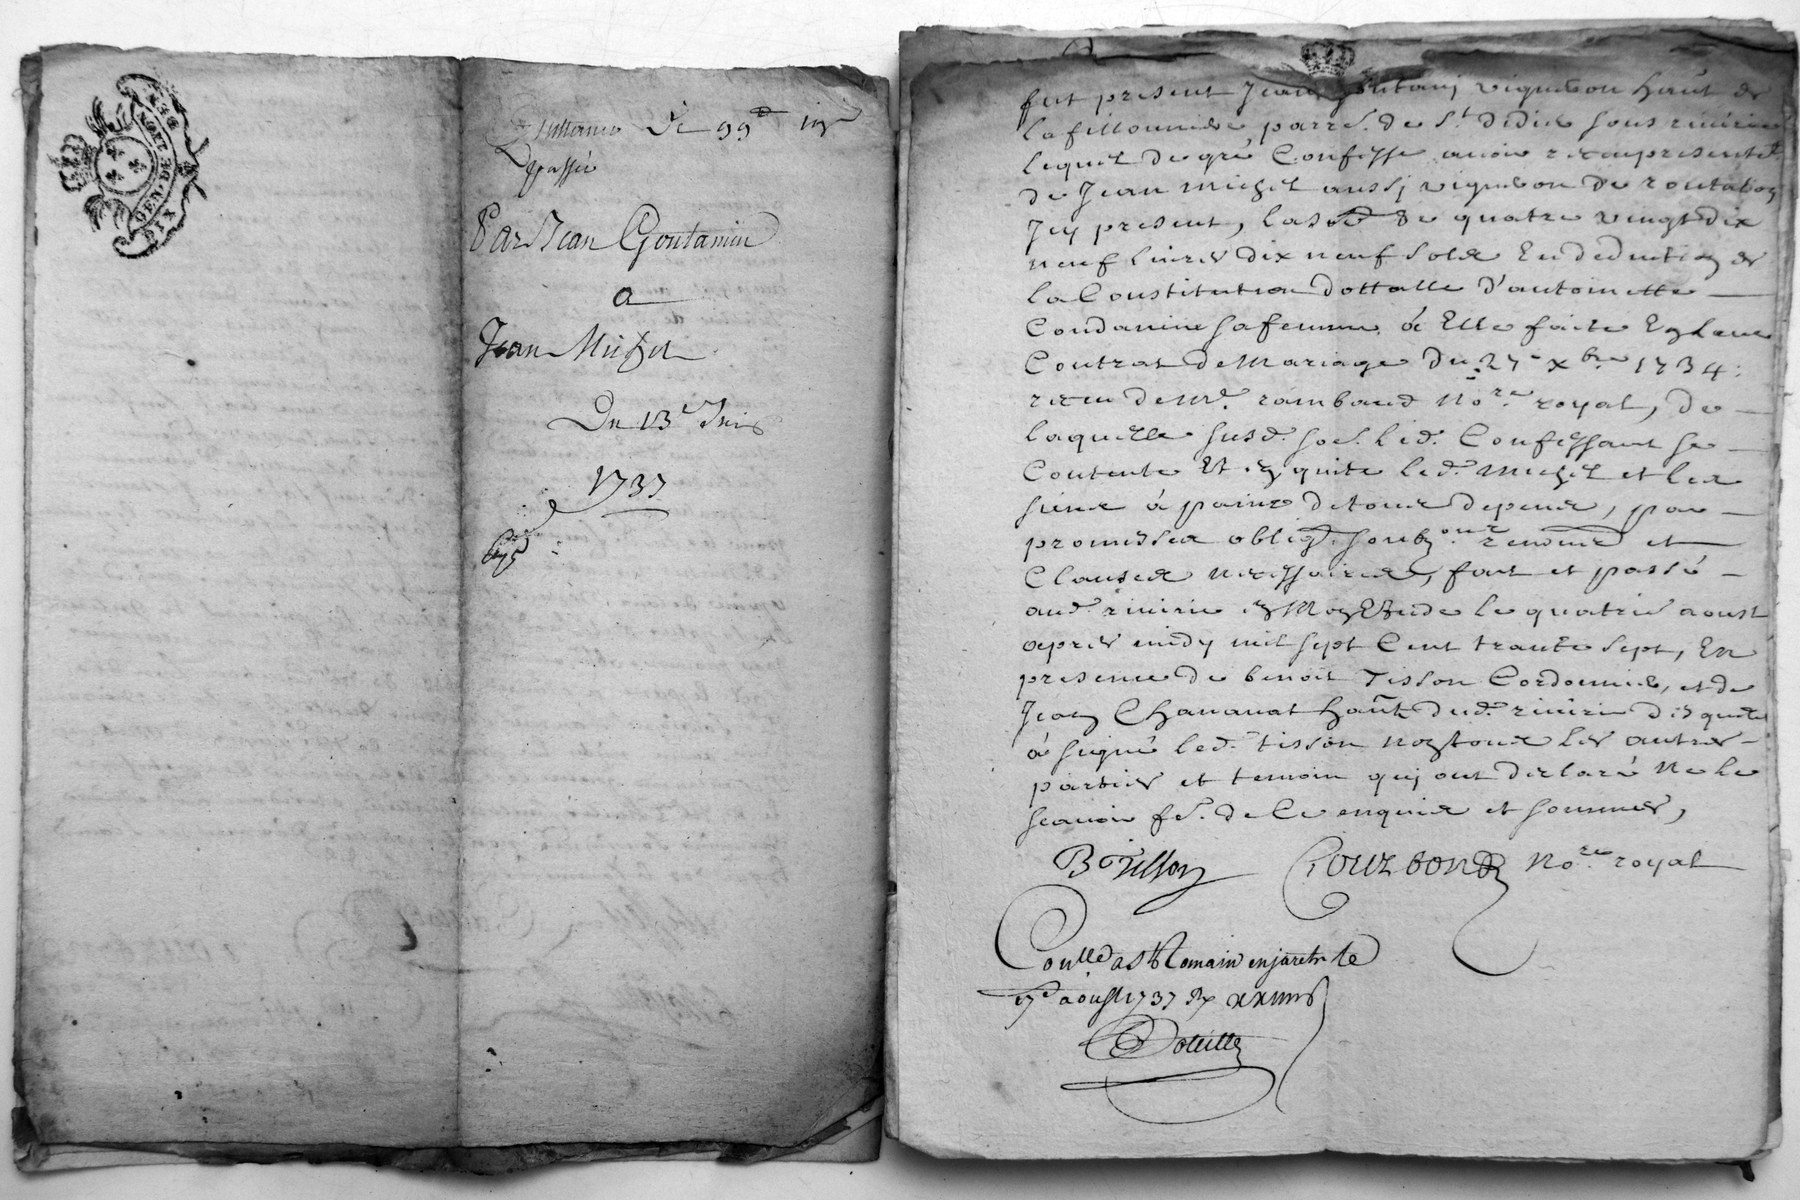 GEN. DE
DIX
quittance de 99ᵈ 19ˢ
passée
Par Jean Goutanin
a
Jean Michel
Du 13ᵉ Juin
1737
fut present Jean vigneron habt de
la fillonniere parrᵉ. de Sᵗ didier sous riviere
lequel de gré Confesse avoir reçu presentᵗ
de Jean michel aussj vigneron de
Jcy present, la soᵉ de quatre vingt dix
neuf livres dix neuf sols En deduction de
la Constitution dottalle d'antoinette
Condamine sa femme à Elle faite En leur
Contrat de Mariage du 27ᵉ xbʳᵉ 1734:
receu de mᵉ. rambaud noʳᵉ royal, de
laquelle susd. soᵉ. led. Confessant se
Contente Et en quitte led. michel et les
siens à peine de tous depens, par
promesses obligᵒⁿ. renonᵒⁿ et
Clauses necessaires, fait et passé
aud. riverie en Mon Etude le quatrie aoust
apres midy mil sept Cent trante sept, En
presence de benoit Tisson Cordonnier, et de
Jean Chavanat habt dud. riverie desquels
a signé led. tisson non tous les autres
parties et temoin quj ont declaré ne le
scavoir fᵉ. de Ce enquis et sommés,
B Tisson noʳᵉ royal
Conllé a Sᵗ Romain en jarets le
17ᵉ aoust 1737